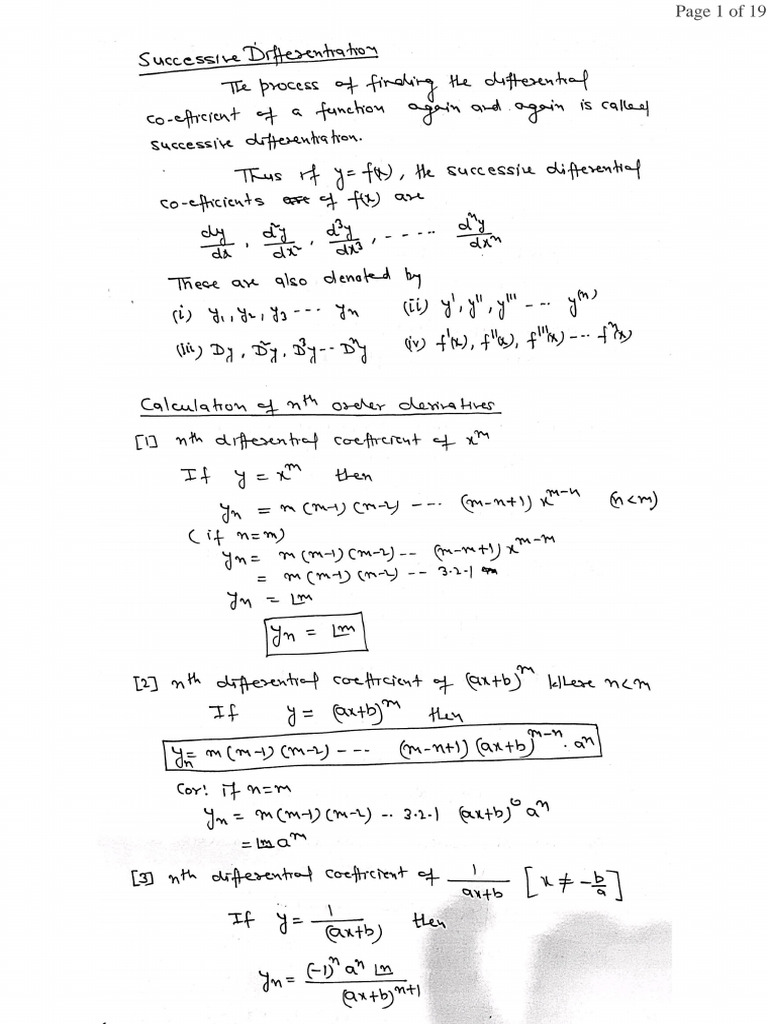 Page 1 of 19
Successive Differentiation
The process of finding the differential
co-efficient of a function again and again is called
successive differentiation.
Thus if y = f(x), the successive differential
co-efficients of f(x) are
dy/dx, d²y/dx², d³y/dx³, ----- dⁿy/dxⁿ
These are also denoted by
(i) y₁, y₂, y₃ --- yₙ (ii) y', y'', y''' --- y⁽ⁿ⁾
(iii) Dy, D²y, D³y --- Dⁿy (iv) f'(x), f''(x), f'''(x) --- fⁿ(x)
Calculation of nth order derivatives
[1] nth differential coefficient of xᵐ
If y = xᵐ then
yₙ = m(m-1)(m-2) ---- (m-n+1) xᵐ⁻ⁿ (n<m)
(if n=m)
yₙ = m(m-1)(m-2) -- (m-m+1) xᵐ⁻ᵐ
= m(m-1)(m-2) -- 3·2·1
yₙ = ⌊m
yₙ = ⌊m
[2] nth differential coefficient of (ax+b)ᵐ Where n<m
If y = (ax+b)ᵐ then
yₙ = m(m-1)(m-2) ---- (m-n+1) (ax+b)ᵐ⁻ⁿ · aⁿ
Cor: if n=m
yₙ = m(m-1)(m-2) -- 3·2·1 (ax+b)⁰ aⁿ
= ⌊m aᵐ
[3] nth differential coefficient of 1/(ax+b) [x ≠ -b/a]
If y = 1/(ax+b) then
yₙ = (-1)ⁿ aⁿ ⌊n / (ax+b)ⁿ⁺¹